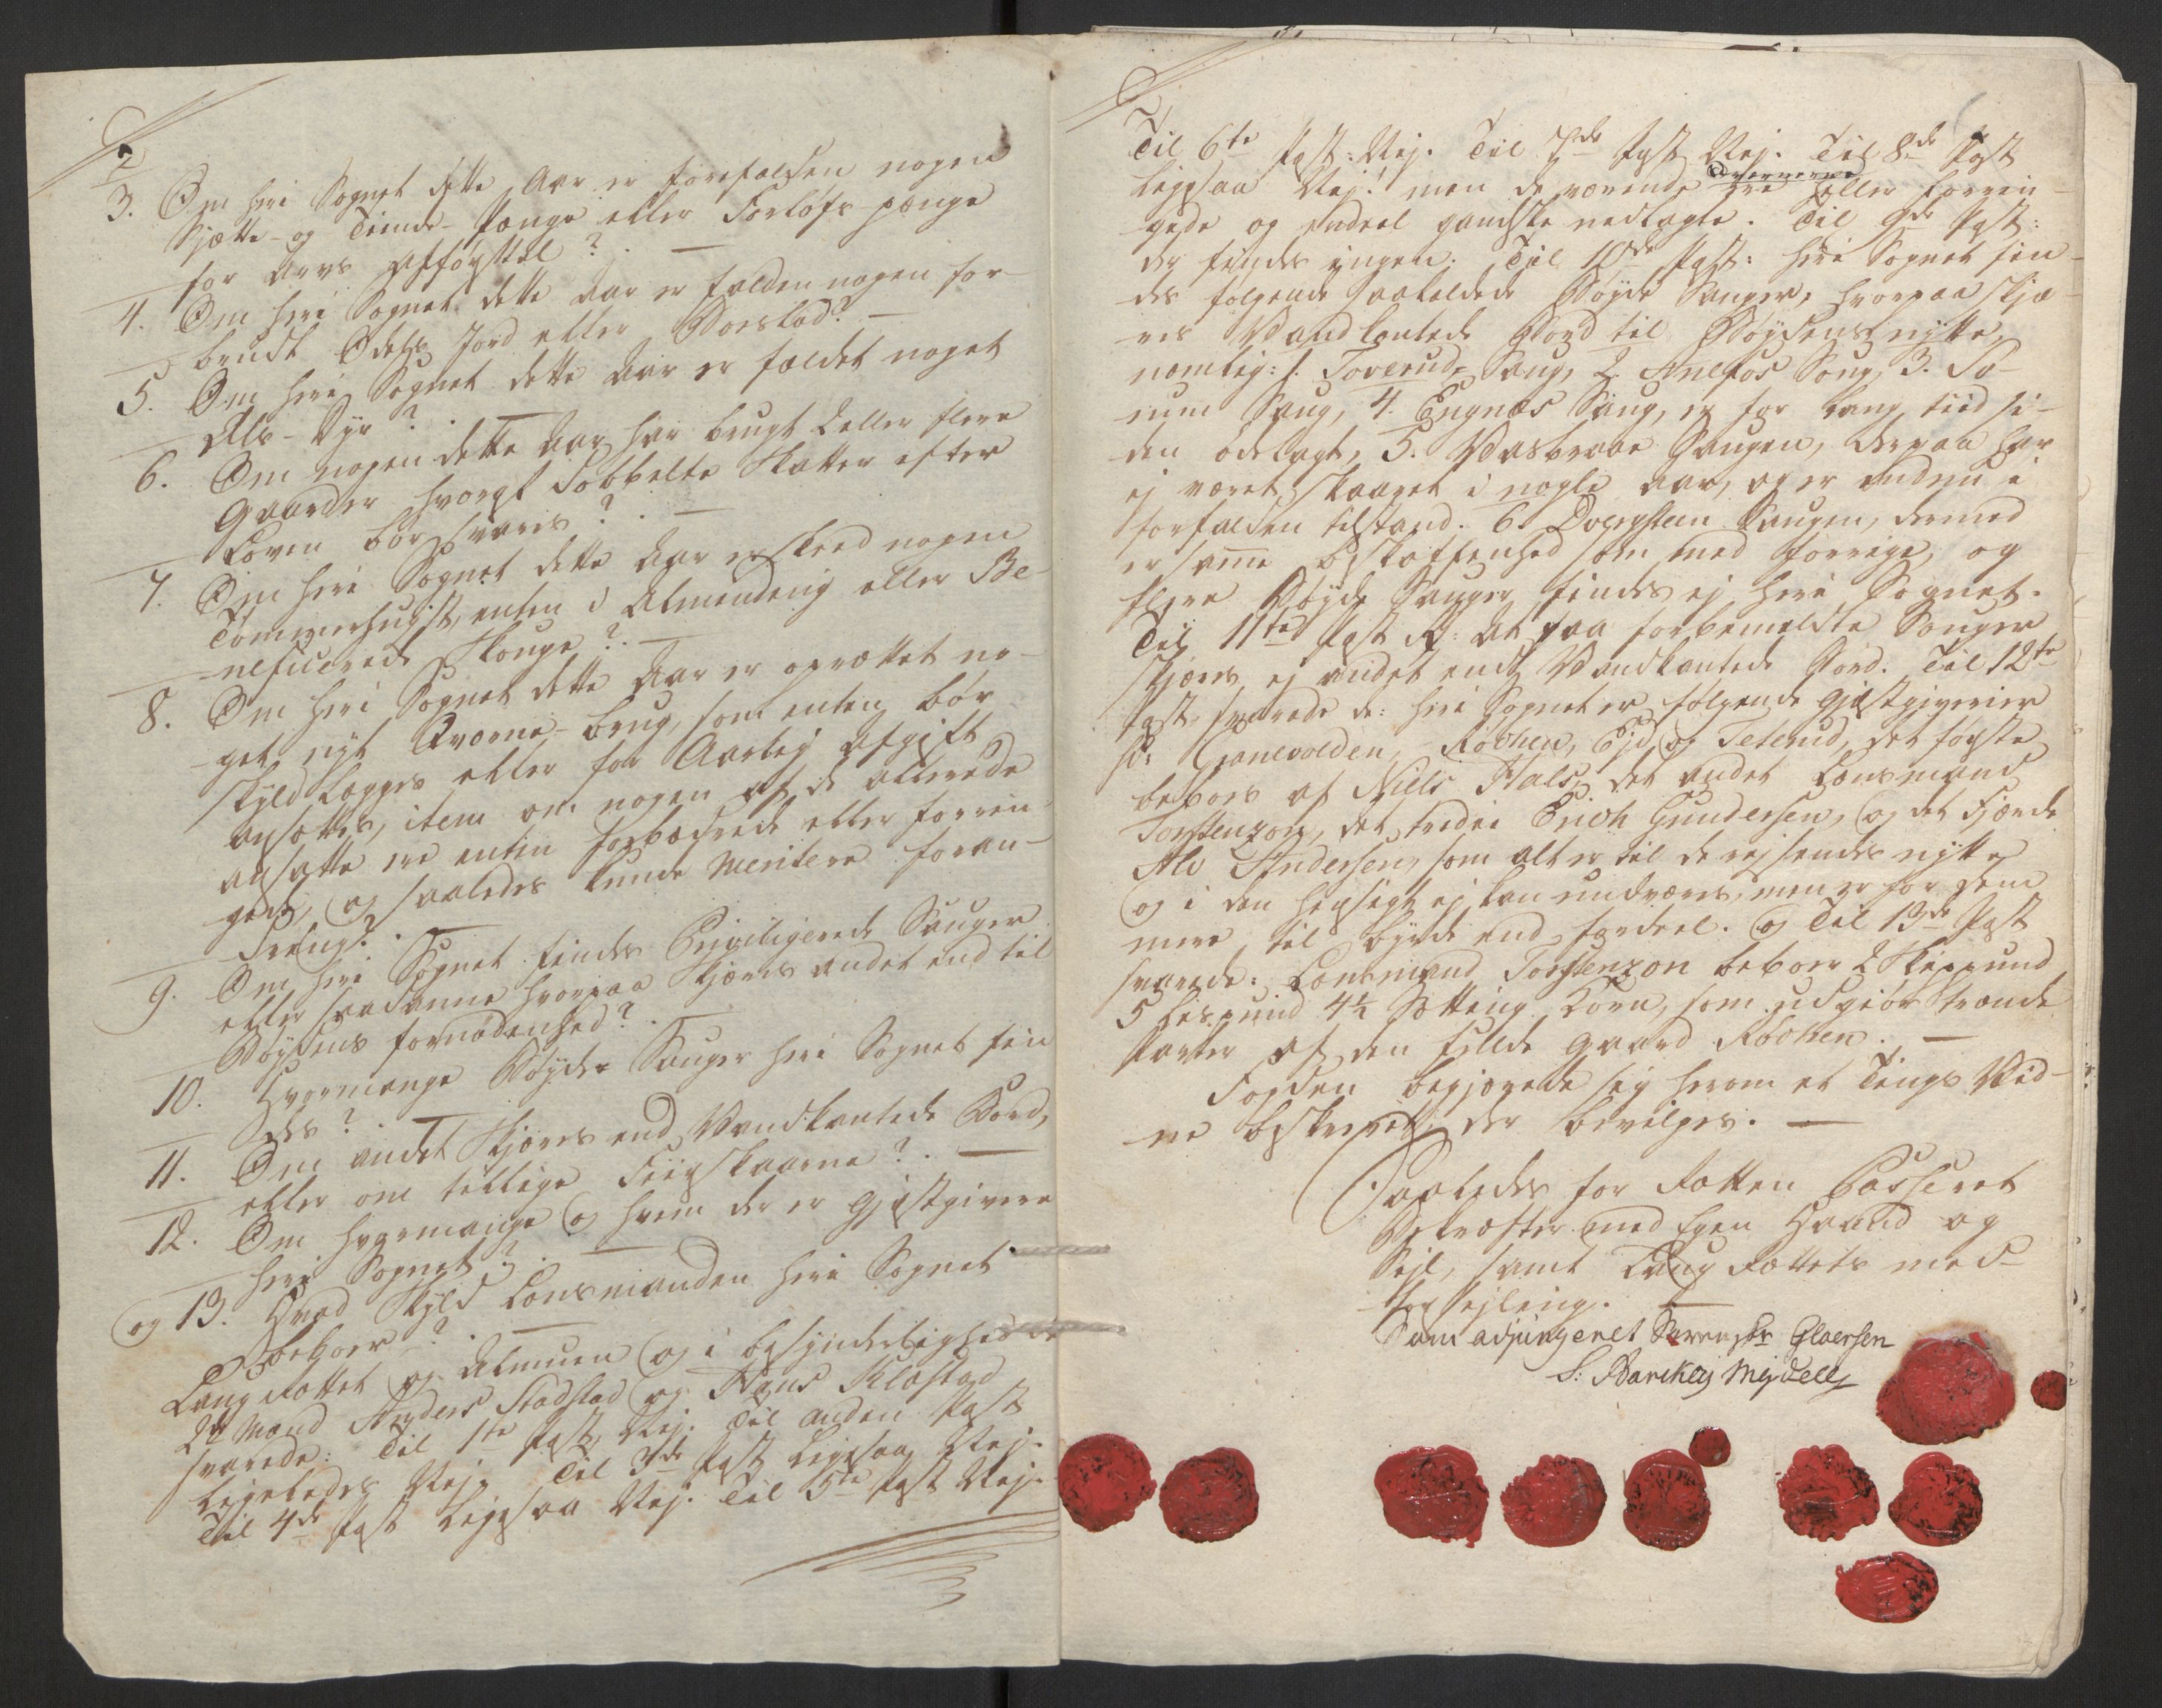 2
3. Om her i Sognet dette Aar er forefalden nogen
Sjette- og Tiende-Penge eller Forlofs-penge
for Arvs afførsel? —
4. Om her i Sognet dette Aar er falden nogen for-
brudt Odels Jord eller Boeslod? —
5. Om her i Sognet dette Aar er faldet noget
Als-Dyr? —
6. Om nogen dette Aar har brugt 2 eller flere
Gaarder hvoraf Dobbelte Skatter efter
Loven bør svares? —
7. Om her i Sognet dette Aar er skeed nogen
Tømmerhugst, enten i Almending eller Be-
neficerede Skouge? —
8. Om her i Sognet dette Aar er oprettet no-
get nyt Qværne-brug, som enten bør
skyldlægges eller for Aarlig Afgift
ansættes, item om nogen af de allerede
ansatte ere enten forbædrede eller forrin-
gede, og saaledes kunde meritere foran-
dring? —
9. Om her i Sognet findes Priviligerede Sauger
eller saadanne hvorpaa skjæres andet end til
Bøydens fornødenhed? —
10. Hvormange Bøyde Sauger her i Sognet fin
des? —
11. Om andet skjæres end Vandkantede Bord,
eller om tillige Fiirskaarne? —
12. Om hvormange og hvem der er gjæstgivere
her i Sognet? —
og 13. Hvad Skyld Lensmanden her i Sognet
beboer? —
LaugRættet og Almuen og i besynderlighed de
2de Mænd Anders Stadstad og Hans Klæstad
svarede: Til 1te Post, Nej. Til anden Post
Ligeledes Nej. Til 3de Post Ligesaa Nej.
Til 4de Post Ligesaa Nej. Til 5te Post Nej.
Til 6te Post: Nej. Til 7de Post Nej. Til 8de Post
Ligesaa Nej! men de værende Qværnerne ere eller forrin-
gede og endeel gandske nedlagte. Til 9de Post:
der findes ingen. Til 10de Post: her i Sognet fin-
des følgende saakaldede Bøyde Sauger, hvorpaa skjæ-
res Vandkantede Bord til Bøydens nytte,
nemlig: 1. Toverud Saug, 2. Anefos Saug, 3. So-
rum Saug, 4. Engnæs Saug, er for lang tiid si-
den ødelagt, 5. Vasbraae Saugen, derpaa har
ej været skaaret i nogle Aar, og er endnu i
forfalden tilstand. 6. Dvergsten Saugen, dermed
er samme beskaffenhed som med forrige, og
flere Bøyde Sauger findes ej her i Sognet.
Til 11te Post R: at paa forbemeldte Sauger
skjæres ej andet end Vandkantede Bord. Til 12te
Post, svarede de: her i Sognet er følgende gjæstgiverier
so: Granevolden, Røcken, Ejd og Teterud, det første
beboes af Niels Hals, det andet Lensmand
Torstenzon, det tredie Erich Gundersen, og det fjerde
Ale Andersen, som alt er til de reisendes nytte
og i den hensigt ej kan undværes, men er for dem
mere til byrde end fordeel. og Til 13de Post
svarede: Lensmand Torstenzon beboer 2 Skippund
5 Lispund 4½ Setting Korn, som udgiør trende
Parter af den fulde gaard Røcken. —
Fogden begjærede sig herom et Tings Vid-
ne beskreven, der bevilges. —
Saaledes for Retten Passeret
Bekræfter med Egen Haand og
Segl, samt LaugRettets med-
forsejling. —
Som adjungeret Glaersen
S: Barckly Mejdell